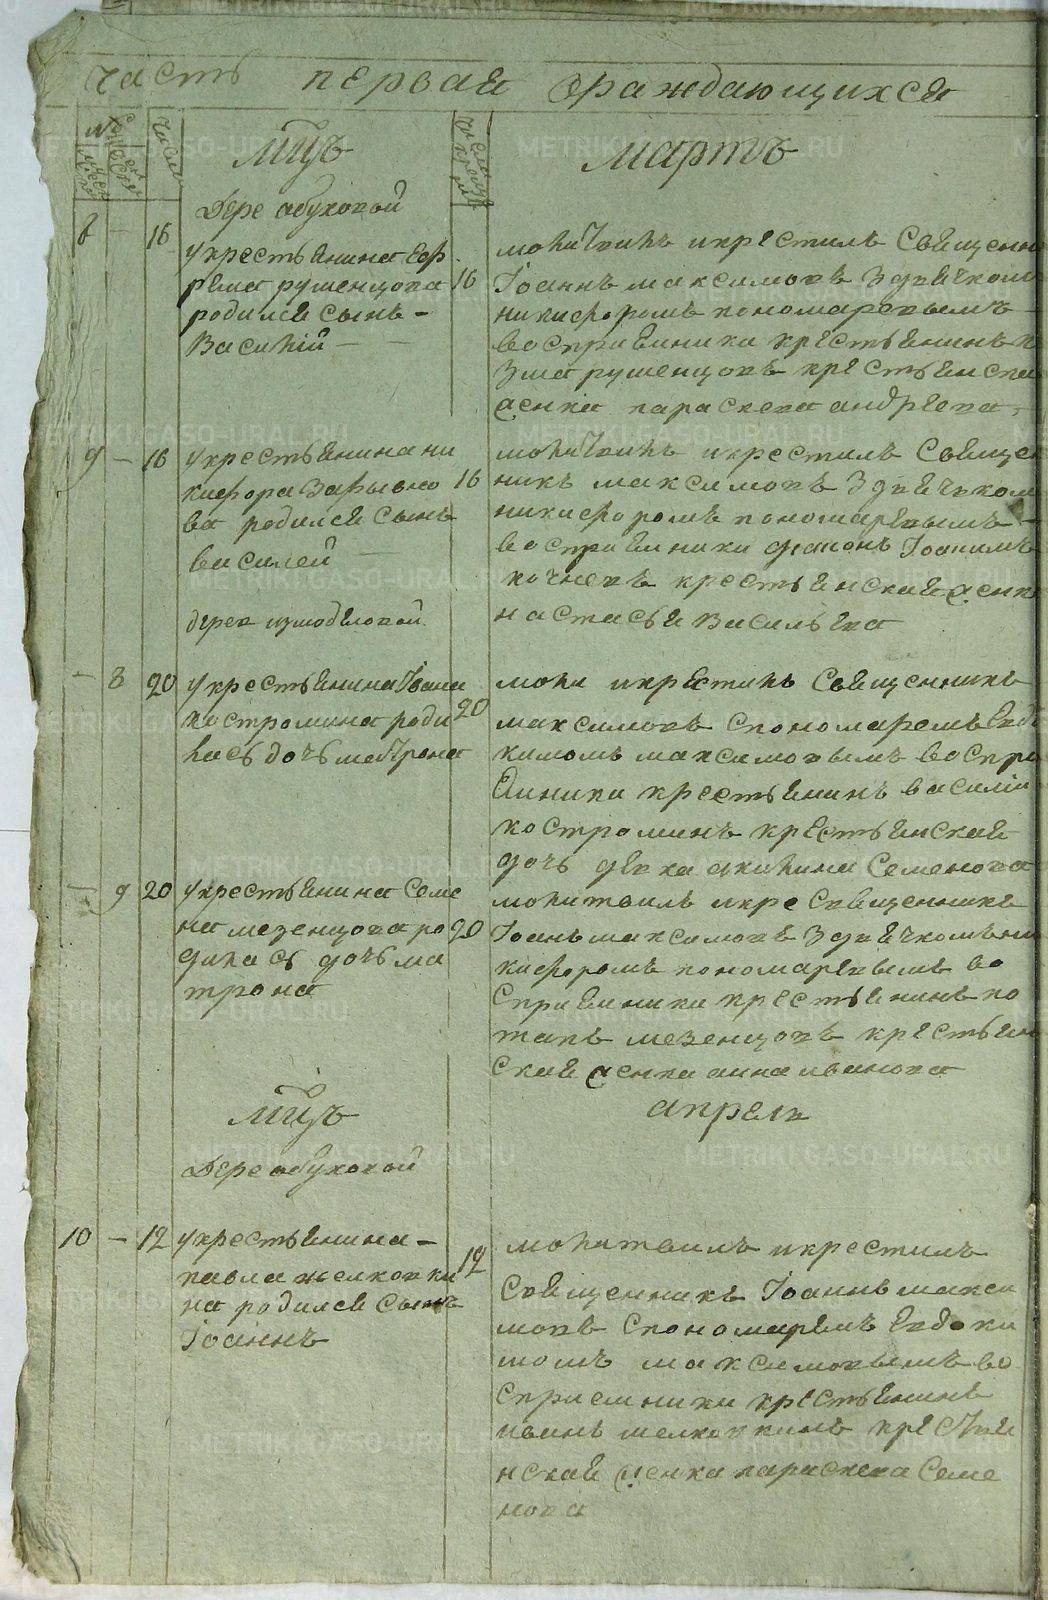 часть первая ораждающихся
мцъ
мартъ
Дере абуховой
8 — 16
укрестьянина Еф
рема рушенцова 16
родился сынъ —
Василий — —
молитвилъ икрестилъ Священн
Іоаннъ максимовъ Здьячкомъ
никифоромъ пономаревымъ
восприемники крестьянинъ
рушенцовъ крестьянска
женка параскева андреева
9 — 16 укрестьянина ни
кифора 16
ва родился сынъ
василей —
молитвилъ икрестилъ Свяще
никъ максимовъ Здьячком
никифоромъ пономаревымъ —
восприемники Іоакимъ
кочневъ крестьянская женк
настасья Васильева
дерев измоделовой
— 8 20 укрестьянина Івана
костромина роди 20
лась дочь матрона
моли икрестилъ Священникъ
максимовъ Спономаремъ Евдо
кимомъ максимовымъ воспри
емники крестьянинъ василій
костроминъ крестьянская
дочь девка акилина Семенова
— 9 20 укрестьянина Семе
на мезенцова ро 20
дилась дочь ма
трона
молитвилъ икре Священникъ
Іоаннъ максимовъ Здьячкомъ ни
кифоромъ пономаревымъ во
сприемники крестьянинъ по
тапъ мезенцовъ крестьян
ская женка анна иванова
мцъ
апрель
Дере абуховой
10 — 12 укрестьянина —
павла шелковки 12
на родился сынъ
Іоаннъ
молитвилъ икрестилъ
Священникъ Іоаннъ макси
мовъ Спономаремъ Евдоки
момъ максимовымъ во
сприемники крестьянинъ
иванъ шелковкинъ крестья
нская женка параскева Семе
нова
METRIKI.GASO-URAL.RU